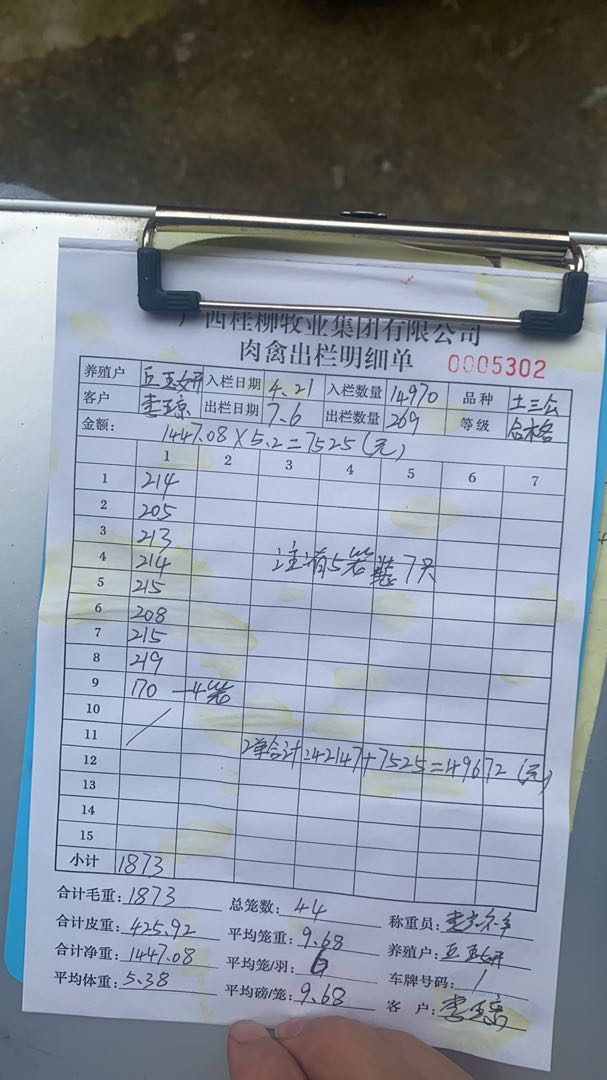 西桂柳牧业集团有限公司
肉禽出栏明细单 0005302
养殖户 丘玉妍 入栏日期 4.21 入栏数量 14970 品种 土三公
客户 出栏日期 7.6 出栏数量 269 等级 合格
金额: 1447.08×5.2=7525(元)
1 2 3 4 5 6 7
1 214
2 205
3 213
4 214 注:有5笼装7只
5 215
6 208
7 215
8 219
9 170 —4笼
10
11
12 2单合计:42147+7525=49672(元)
13
14
15
小计 1873
合计毛重: 1873 总笼数: 44 称重员:
合计皮重: 425.92 平均笼重: 9.68 养殖户: 丘玉妍
合计净重: 1447.08 平均笼/羽: 6 车牌号码: 1
平均体重: 5.38 平均磅/笼: 9.68 客 户: